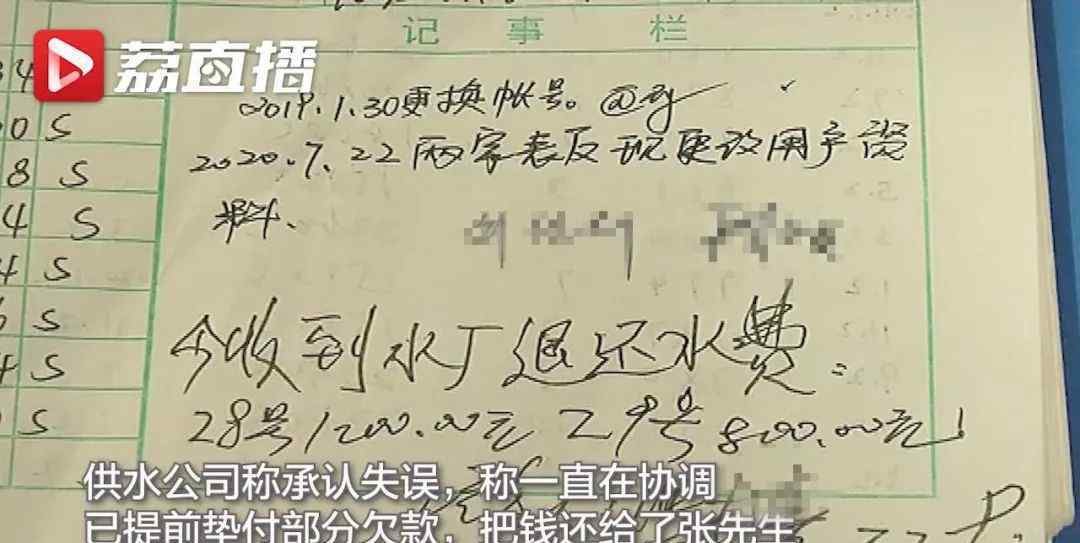 记事栏
荔直播
2019.1.30更换帐号。
2020.7.22两家表反现更改用户资
料、
今收到水厂退还水费：
28号1200.00元 29号800.00元！
4
0 S
8 S
4 S
4 S
S
4 S
S
供水公司称承认失误，称一直在协调
已提前垫付部分欠款，把钱还给了张先生